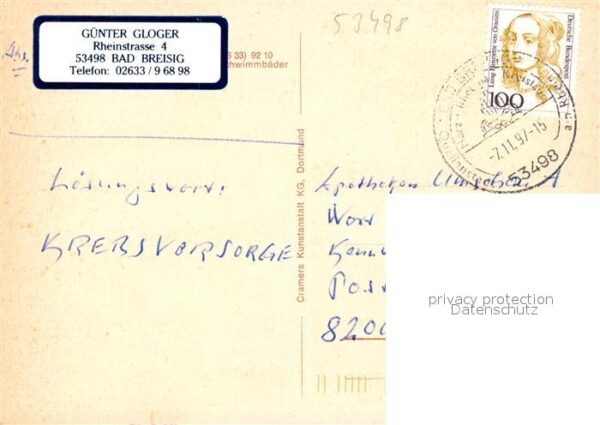 53498
GÜNTER GLOGER
Rheinstrasse 4
53498 BAD BREISIG
Telefon: 02633 / 9 68 98
Abs.
6 33) 92 10
chwimmbäder
Deutsche Bundespost
100
-7.11.97-15
53498
Lösungswort:
KREBSVORSORGE
Cramers Kunstanstalt KG, Dortmund
Apotheken Umschau A
Wort
Kenn
Post
8200
privacy protection
Datenschutz